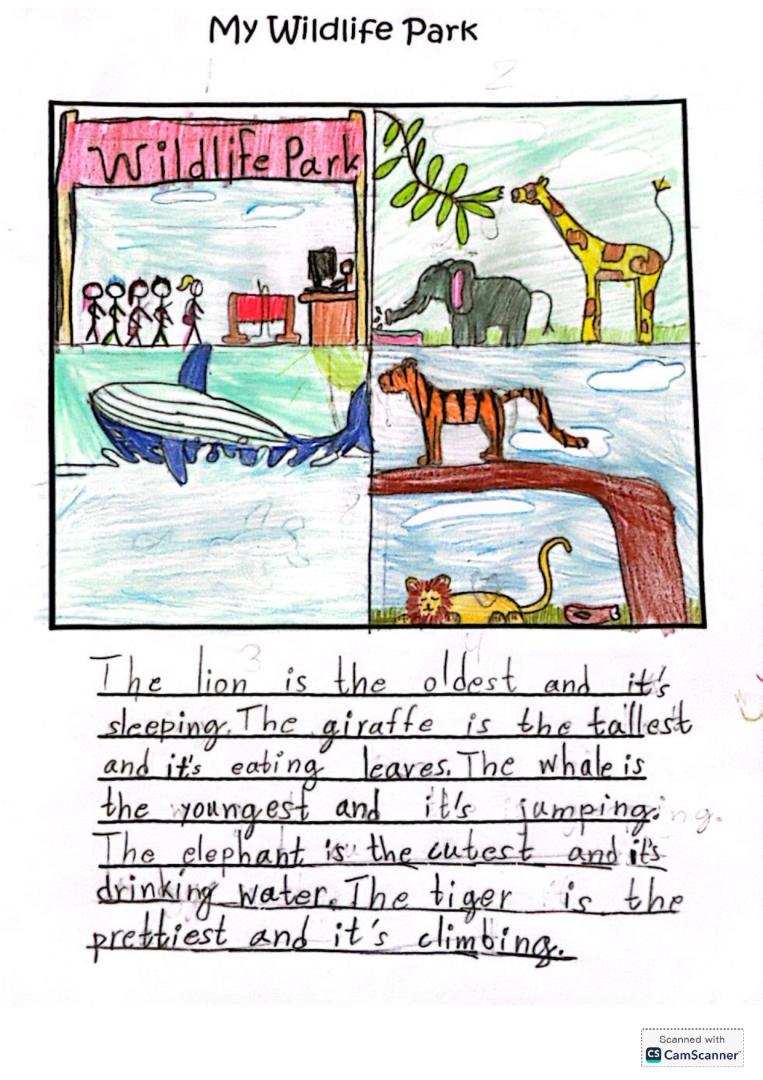 My Wildlife Park
Wildlife Park
The lion is the oldest and it's
sleeping. The giraffe is the tallest
and it's eating leaves. The whale is
the youngest and it's jumping.
The elephant is the cutest and it's
drinking water. The tiger is the
prettiest and it's climbing.
Scanned with
CS CamScanner